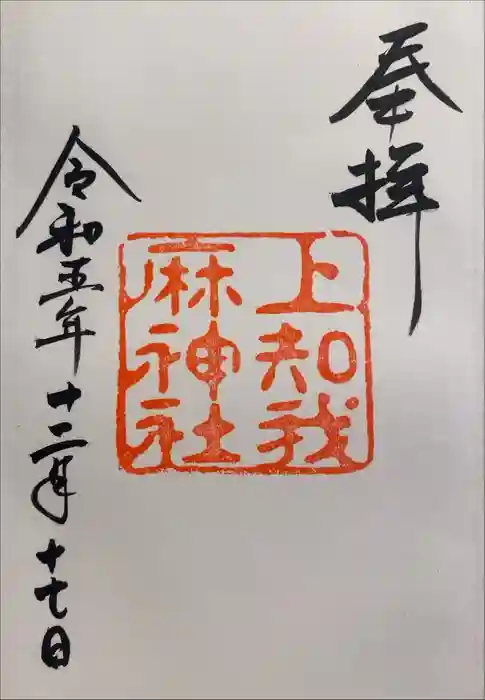 奉拝
上知我
麻神社
令和五年十二月十七日